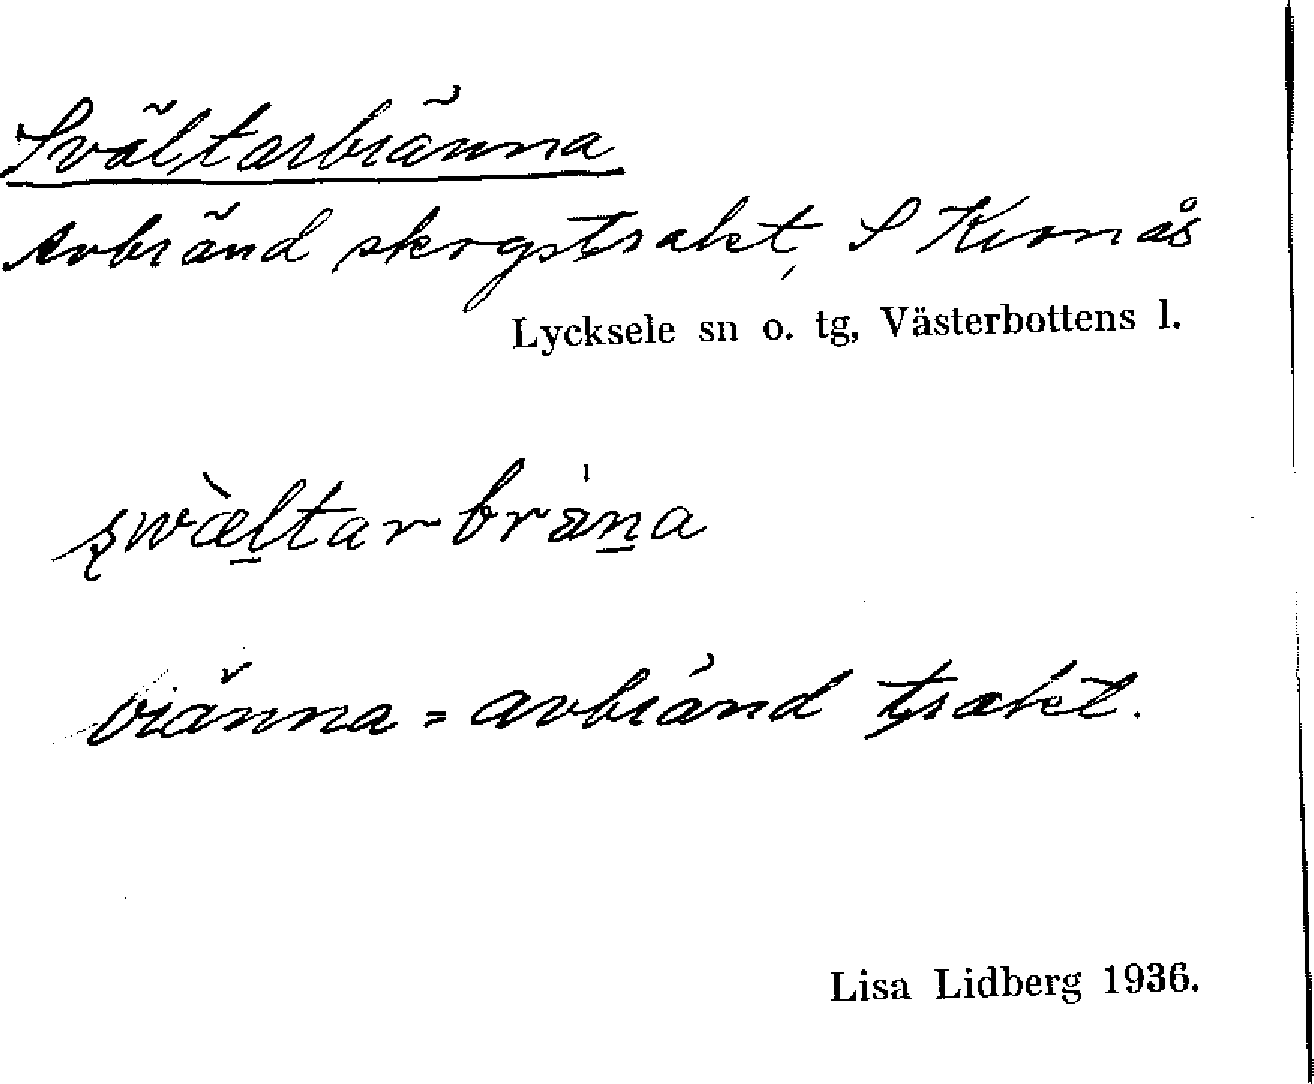 Svältarbränna
Avbränd skogstrakt, S
Lycksele sn o. tg, Västerbottens l.
bränna = avbränd trakt.
Lisa Lidberg 1936.